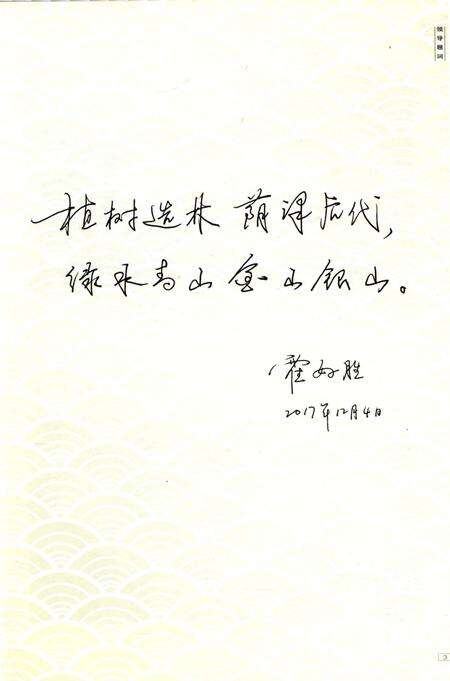 领导题词
植树造林 荫泽后代，
绿水青山 金山银山。
霍好胜
2017年12月4日
3